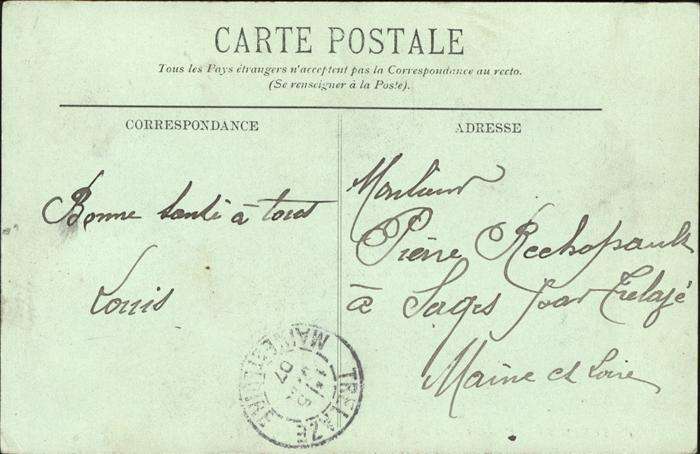 CARTE POSTALE
Tous les Pays étrangers n'acceptent pas la Correspondance au recto.
(Se renseigner à la Poste).
CORRESPONDANCE
Bonne santé à tous
Louis
ADRESSE
Monsieur
Pierre
à par Trelazé
Maine et Loire
TRELAZE
MAINE ET LOIRE
07